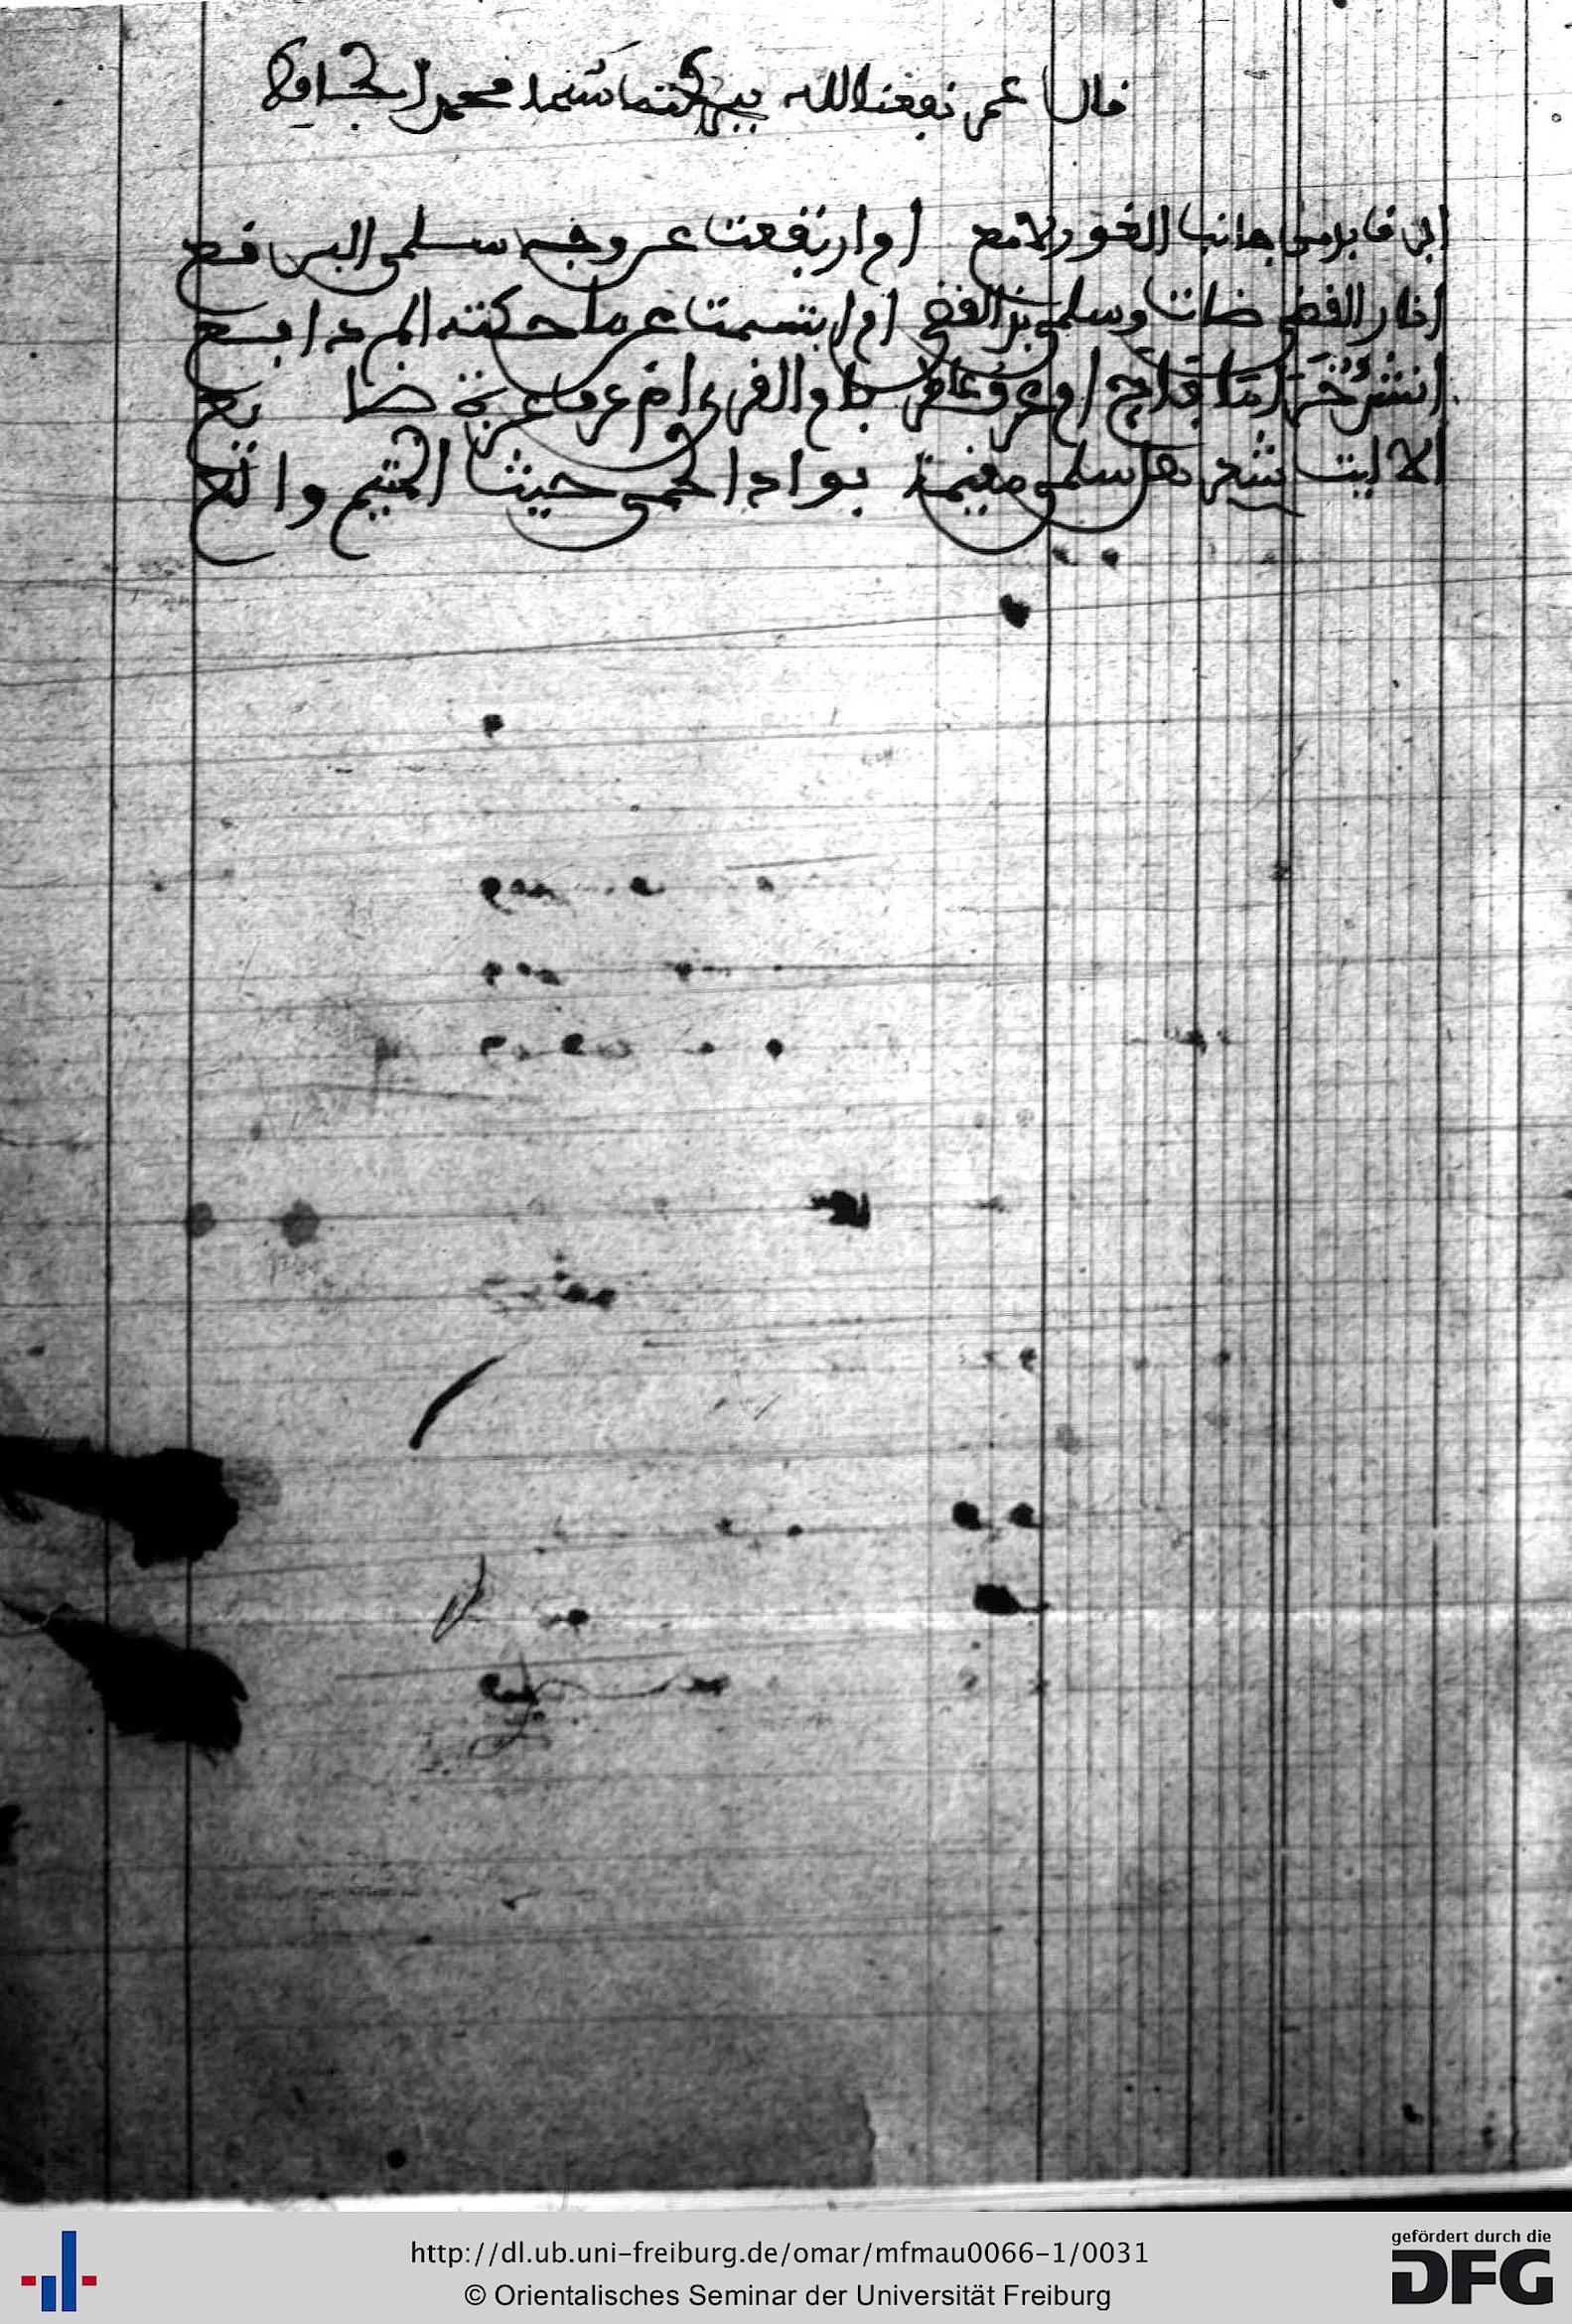 قال عمر نفعنا الله ببركته محمد
ابرق بدا من جانب الغور لامع ام ارتفعت عن وجه سلمى البراقع
انار الغضى ضاءت وسلمى بذ الغضى ام ابتسمت عما حكته المدامع
انشر خزامى فاح ام عرف حاجر بام القرى ام عزة ضايع
الا ليت شعر هل سلمى مقيمة بواد الحمى حيث المتيم والع
http://dl.ub.uni-freiburg.de/omar/mfmau0066-1/0031
© Orientalisches Seminar der Universität Freiburg
gefördert durch die
DFG